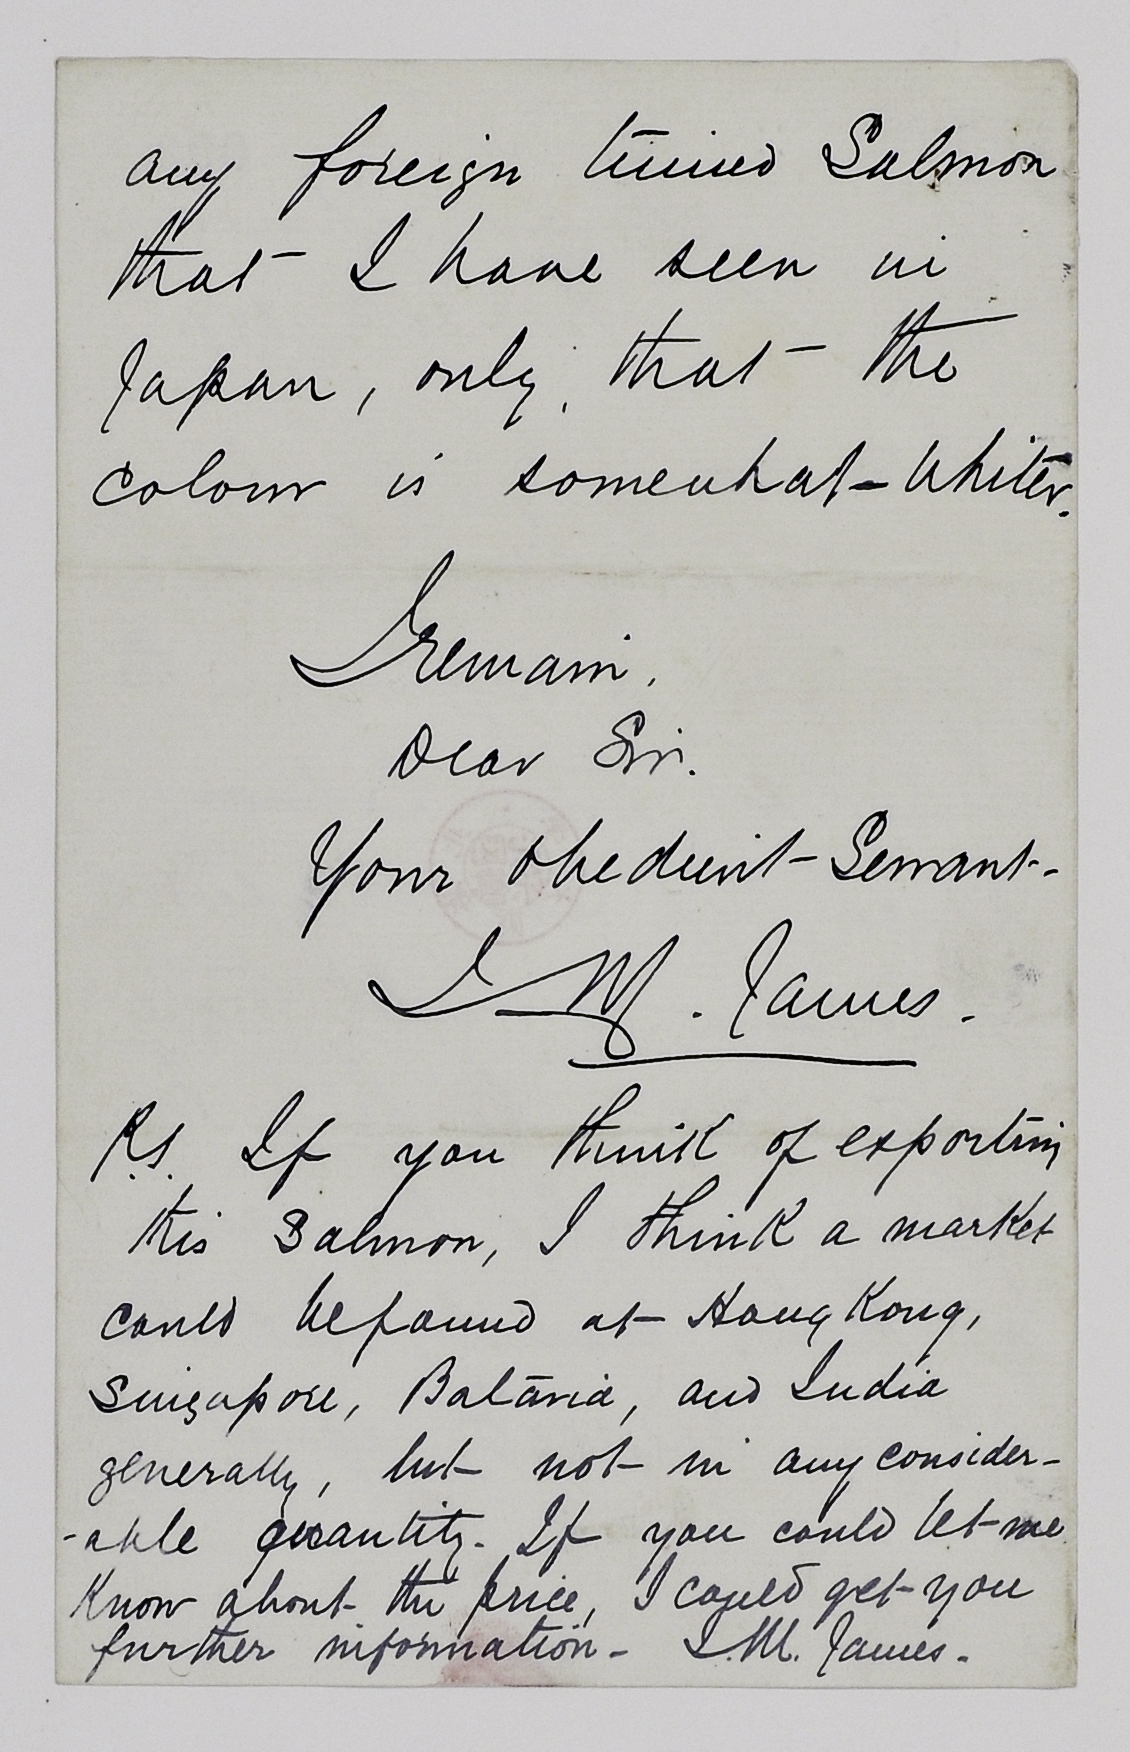 any foreign tinned Salmon
that I have seen in
Japan, only, that the
colour is somewhat whiter.
I remain,
Dear Sir.
Your obedient Servant.
J. M. James.
P.S. If you think of exporting
this Salmon, I think a market
could be found at Hong Kong,
Singapore, Batavia, and India
generally, but not in any consider-
-able quantity. If you could let me
know about the price, I could get you
further information. J. M. James.